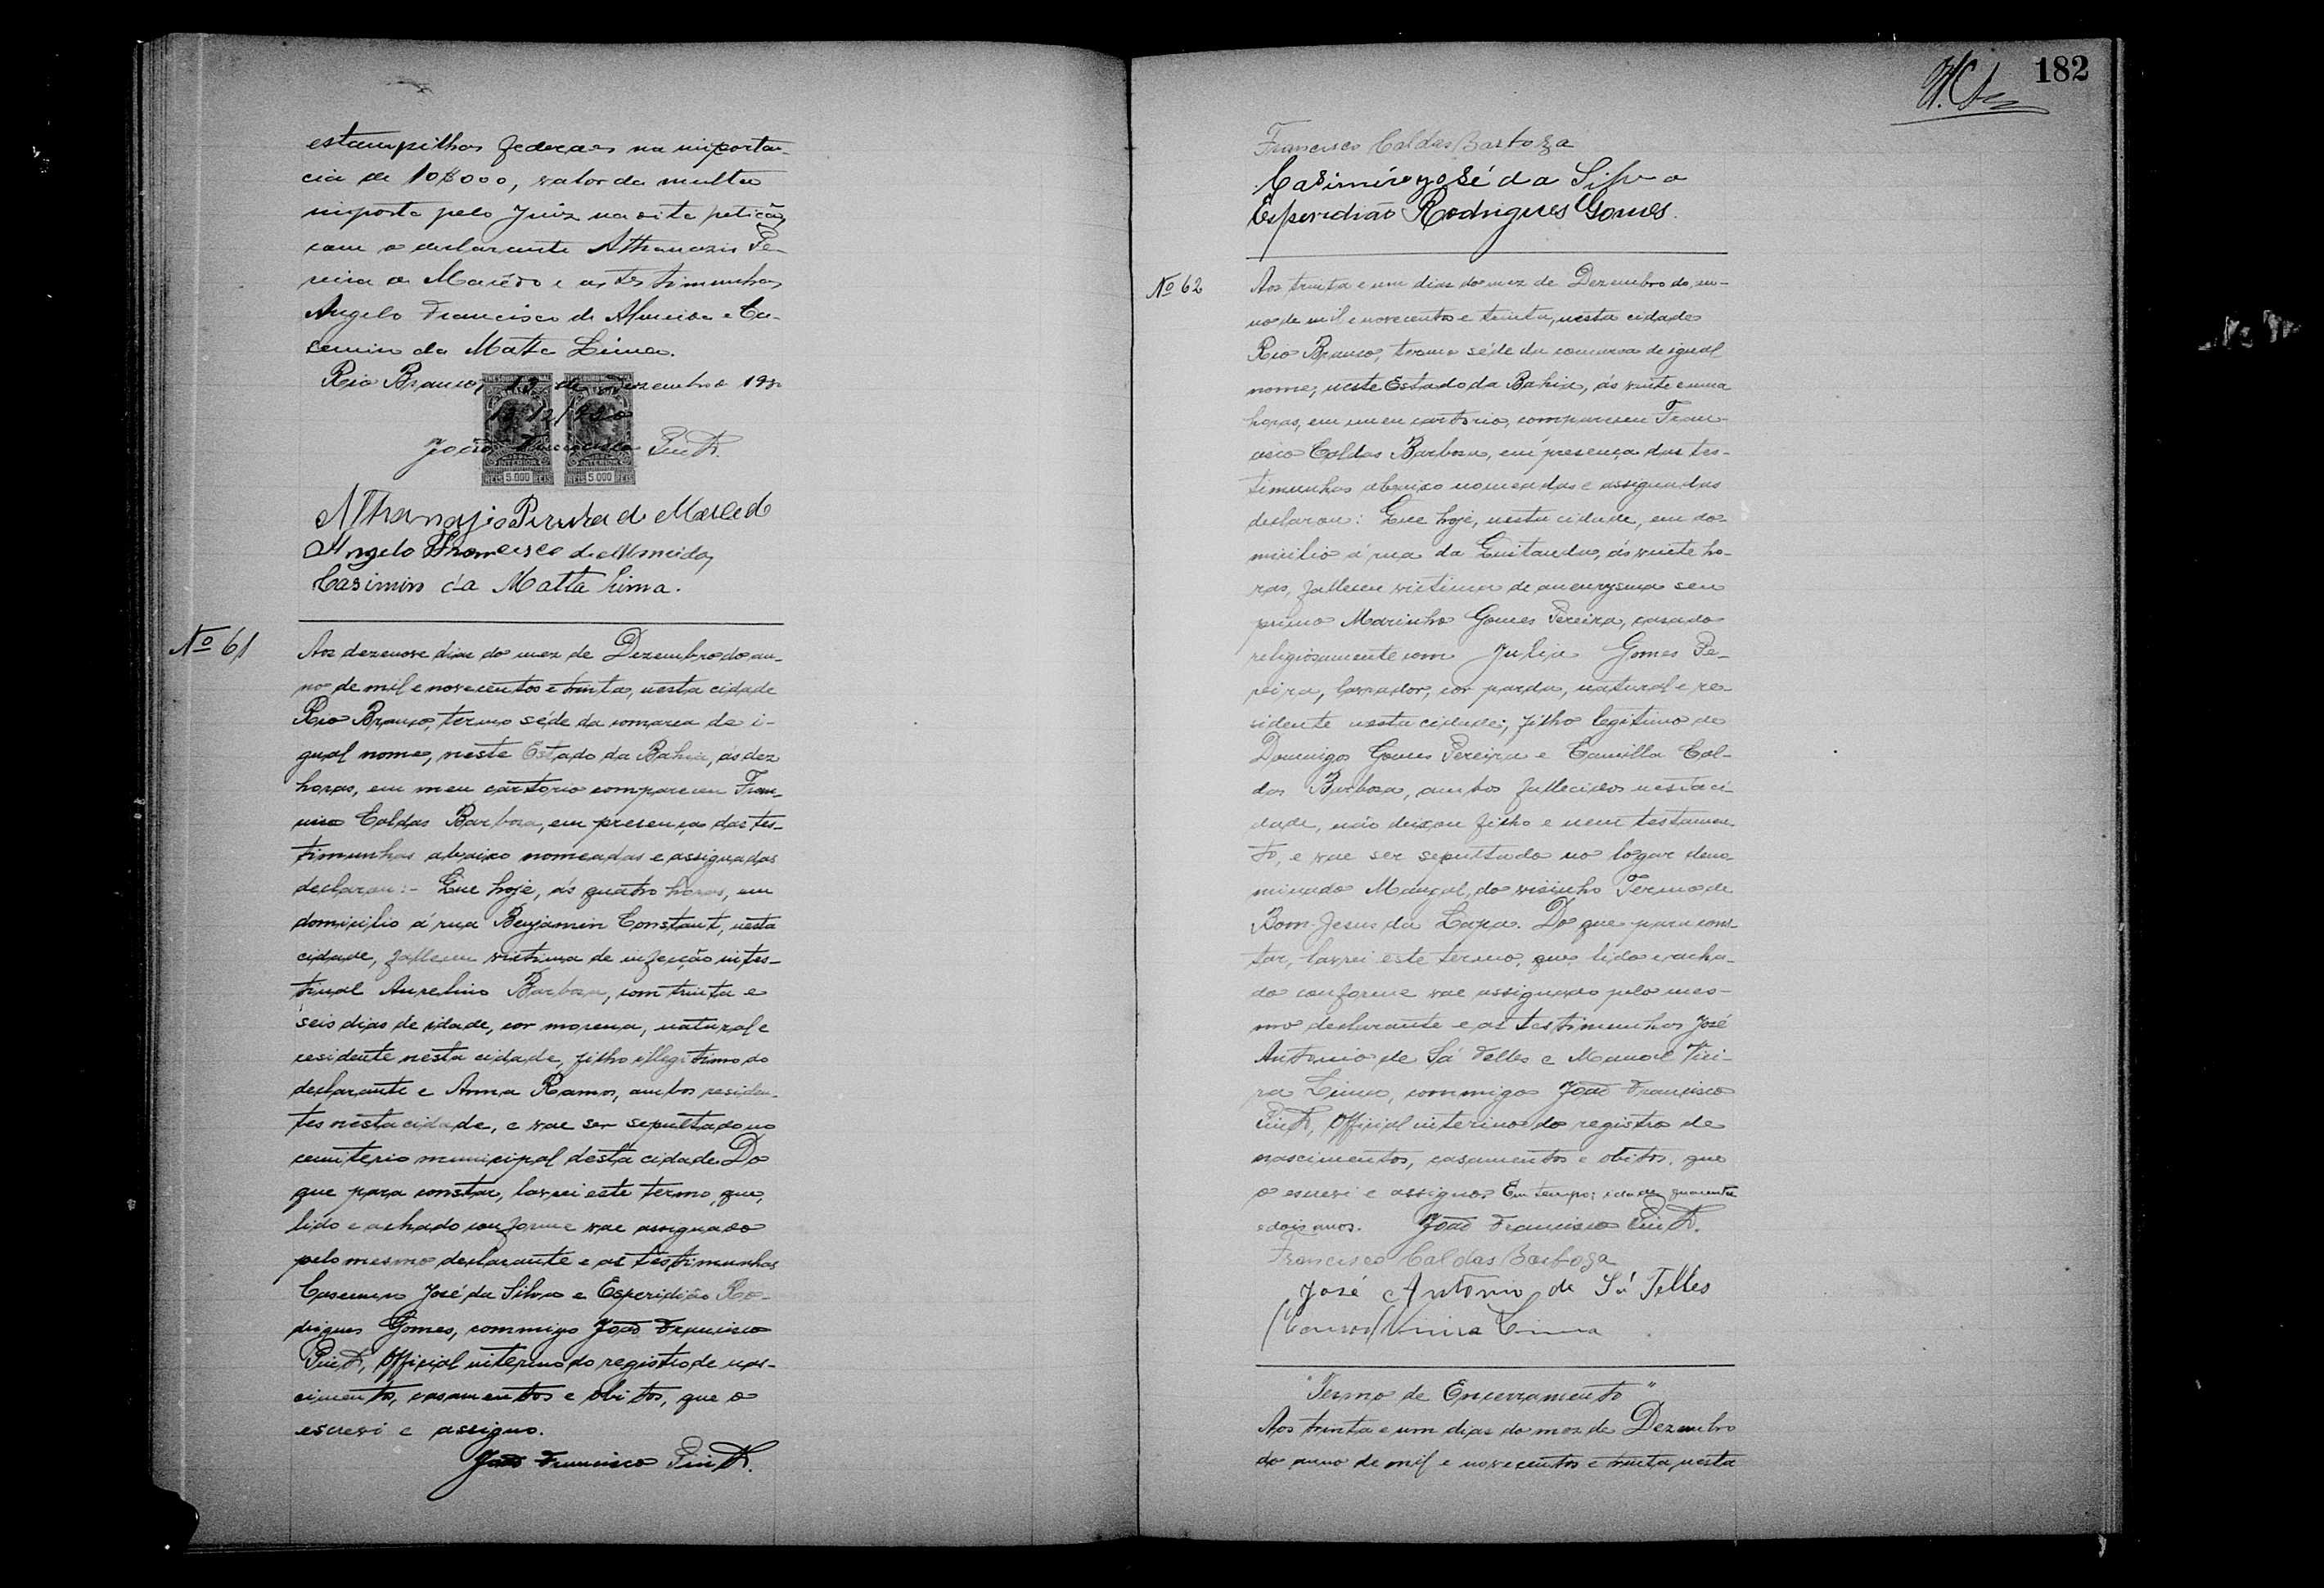 estampilhas federaes na importan-
cia de 10$000, valor da multa
imposta pelo Juiz na dita petição,
com o declarante Athanazio Pe-
reira de Macêdo e as testimunhas
Angelo Francisco de Almeida e Ca-
semiro da Matta Lima.
Rio Branco, 19 de Dezembro 1930
João Francisco Pinto.
THESOURO NACIONAL
INTERIOR
REIS 5.000 REIS
REIS 5.000 REIS
Athanazio Pereira de Macedo
Angelo Francisco de Almeida
Casimiro da Matta Lima.
Nº 61
Aos dezenove dias do mez de Dezembro do an-
no de mil e novecentos e trinta, nesta cidade
Rio Branco, termo séde da comarca de i-
gual nome, neste Estado da Bahia, ás dez
horas, em meu cartorio compareceu Fran-
cisco Caldas Barbosa, em presença das tes-
timunhas abaixo nomeadas e assignadas
declarou:- Que hoje, ás quatro horas, em
domicilio á rua Benjamin Constant, nesta
cidade, falleceu victima de infecção intes-
tinal Aurelino Barbosa, com trinta e
seis dias de idade, cor morena, natural e
residente nesta cidade, filho illegitimo do
declarante e Anna Ramos, ambos residen-
tes nesta cidade, e vae ser sepultado no
cemiterio municipal desta cidade. Do
que para constar, lavrei este termo, que,
lido e achado conforme vae assignado
pelo mesmo declarante e as testimunhas
Casemiro José da Silva e Esperidião Ro-
drigues Gomes, commigo João Francisco
Pinto, Official interino do registro de nas-
cimentos, casamentos e obitos, que o
escrevi e assigno.
João Francisco Pinto.
182
Francisco Caldas Barboza
Casimiro José da Silva
Esperidião Rodrigues Gomes.
Nº 62
Aos trinta e um dias do mez de Dezembro do an-
no de mil e novecentos e trinta, nesta cidade
Rio Branco, termo séde da comarca de igual
nome, neste Estado da Bahia, ás vinte e uma
horas, em meu cartorio, compareceu Fran-
cisco Caldas Barbosa, em presença das tes-
timunhas abaixo nomeadas e assignadas
declarou: Que hoje, nesta cidade, em do-
micilio á rua da Quitanda, ás vinte ho-
ras, falleceu victima de aneurysma seu
primo Marinho Gomes Pereira, casado
religiosamente com Julia Gomes Pe-
reira, lavrador, cor parda, natural e re-
sidente nesta cidade; filho legitimo de
Domingos Gomes Pereira e Camilla Cal-
das Barbosa, ambos fallecidos nesta ci-
dade, não deixou filho e nem testamen-
to, e vae ser sepultado no logar deno-
minado Mangal, do visinho Termo de
Bom Jesus da Lapa. Do que para cons-
tar, lavrei este termo, que, lido e acha-
do conforme vae assignado pelo mes-
mo declarante e as testimunhas José
Antonio de Sá Telles e Manoel Viei-
ra Lima, commigo João Francisco
Pinto, Official interino do registro de
nascimentos, casamentos e obitos, que
o escrevi e assigno. Em tempo: idade quarenta
e dois anos. João Francisco Pinto.
Francisco Caldas Barboza
José Antonio de Sá Telles
Manoel Vieira Lima
"Termo de Encerramento"
Aos trinta e um dias do mez de Dezembro
do anno de mil e novecentos e trinta, nesta